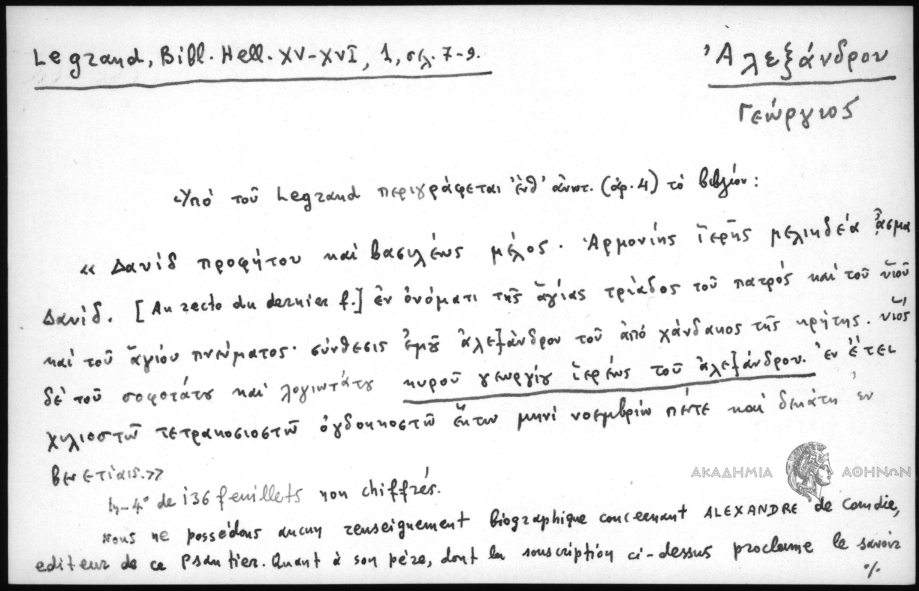 Legrand, Bibl. Hell. XV-XVI, 1, σελ. 7-9.
Ἀλεξάνδρου
Γεώργιος
Ὑπό τοῦ Legrand περιγράφεται ἔνθ' ἀνωτ. (ἀρ. 4) τό βιβλίον:
« Δανίδ προφήτου καί βασιλέως μέλος. Ἁρμονίης ἱερῆς μελιηδέα ᾆσμα
Δανίδ. [Au recto du dernier f.] ἐν ὀνόματι τῆς ἁγίας τριάδος τοῦ πατρός καί τοῦ υἱοῦ
καί τοῦ ἁγίου πνεύματος· σύνθεσις ἐμοῦ ἀλεξάνδρου τοῦ ἀπό χάνδακος τῆς κρήτης. υἱός
δέ τοῦ σοφοτάτου καί λογιωτάτου κυροῦ γεωργίου ἱερέως τοῦ ἀλεξάνδρου. Ἐν ἔτει
χιλιοστῷ τετρακοσιοστῷ ὀγδοηκοστῷ ἕκτῳ μηνί νοεμβρίῳ πέντε καί δεκάτῃ ἐν
βενετίαις.»
In-4° de 136 feuillets non chiffrés.
ΑΚΑΔΗΜΙΑ ΑΘΗΝΩΝ
Nous ne possédons aucun renseignement biographique concernant ALEXANDRE de Candie,
editeur de ce Psautier. Quant à son père, dont la souscription ci-dessus proclame le savoir
%